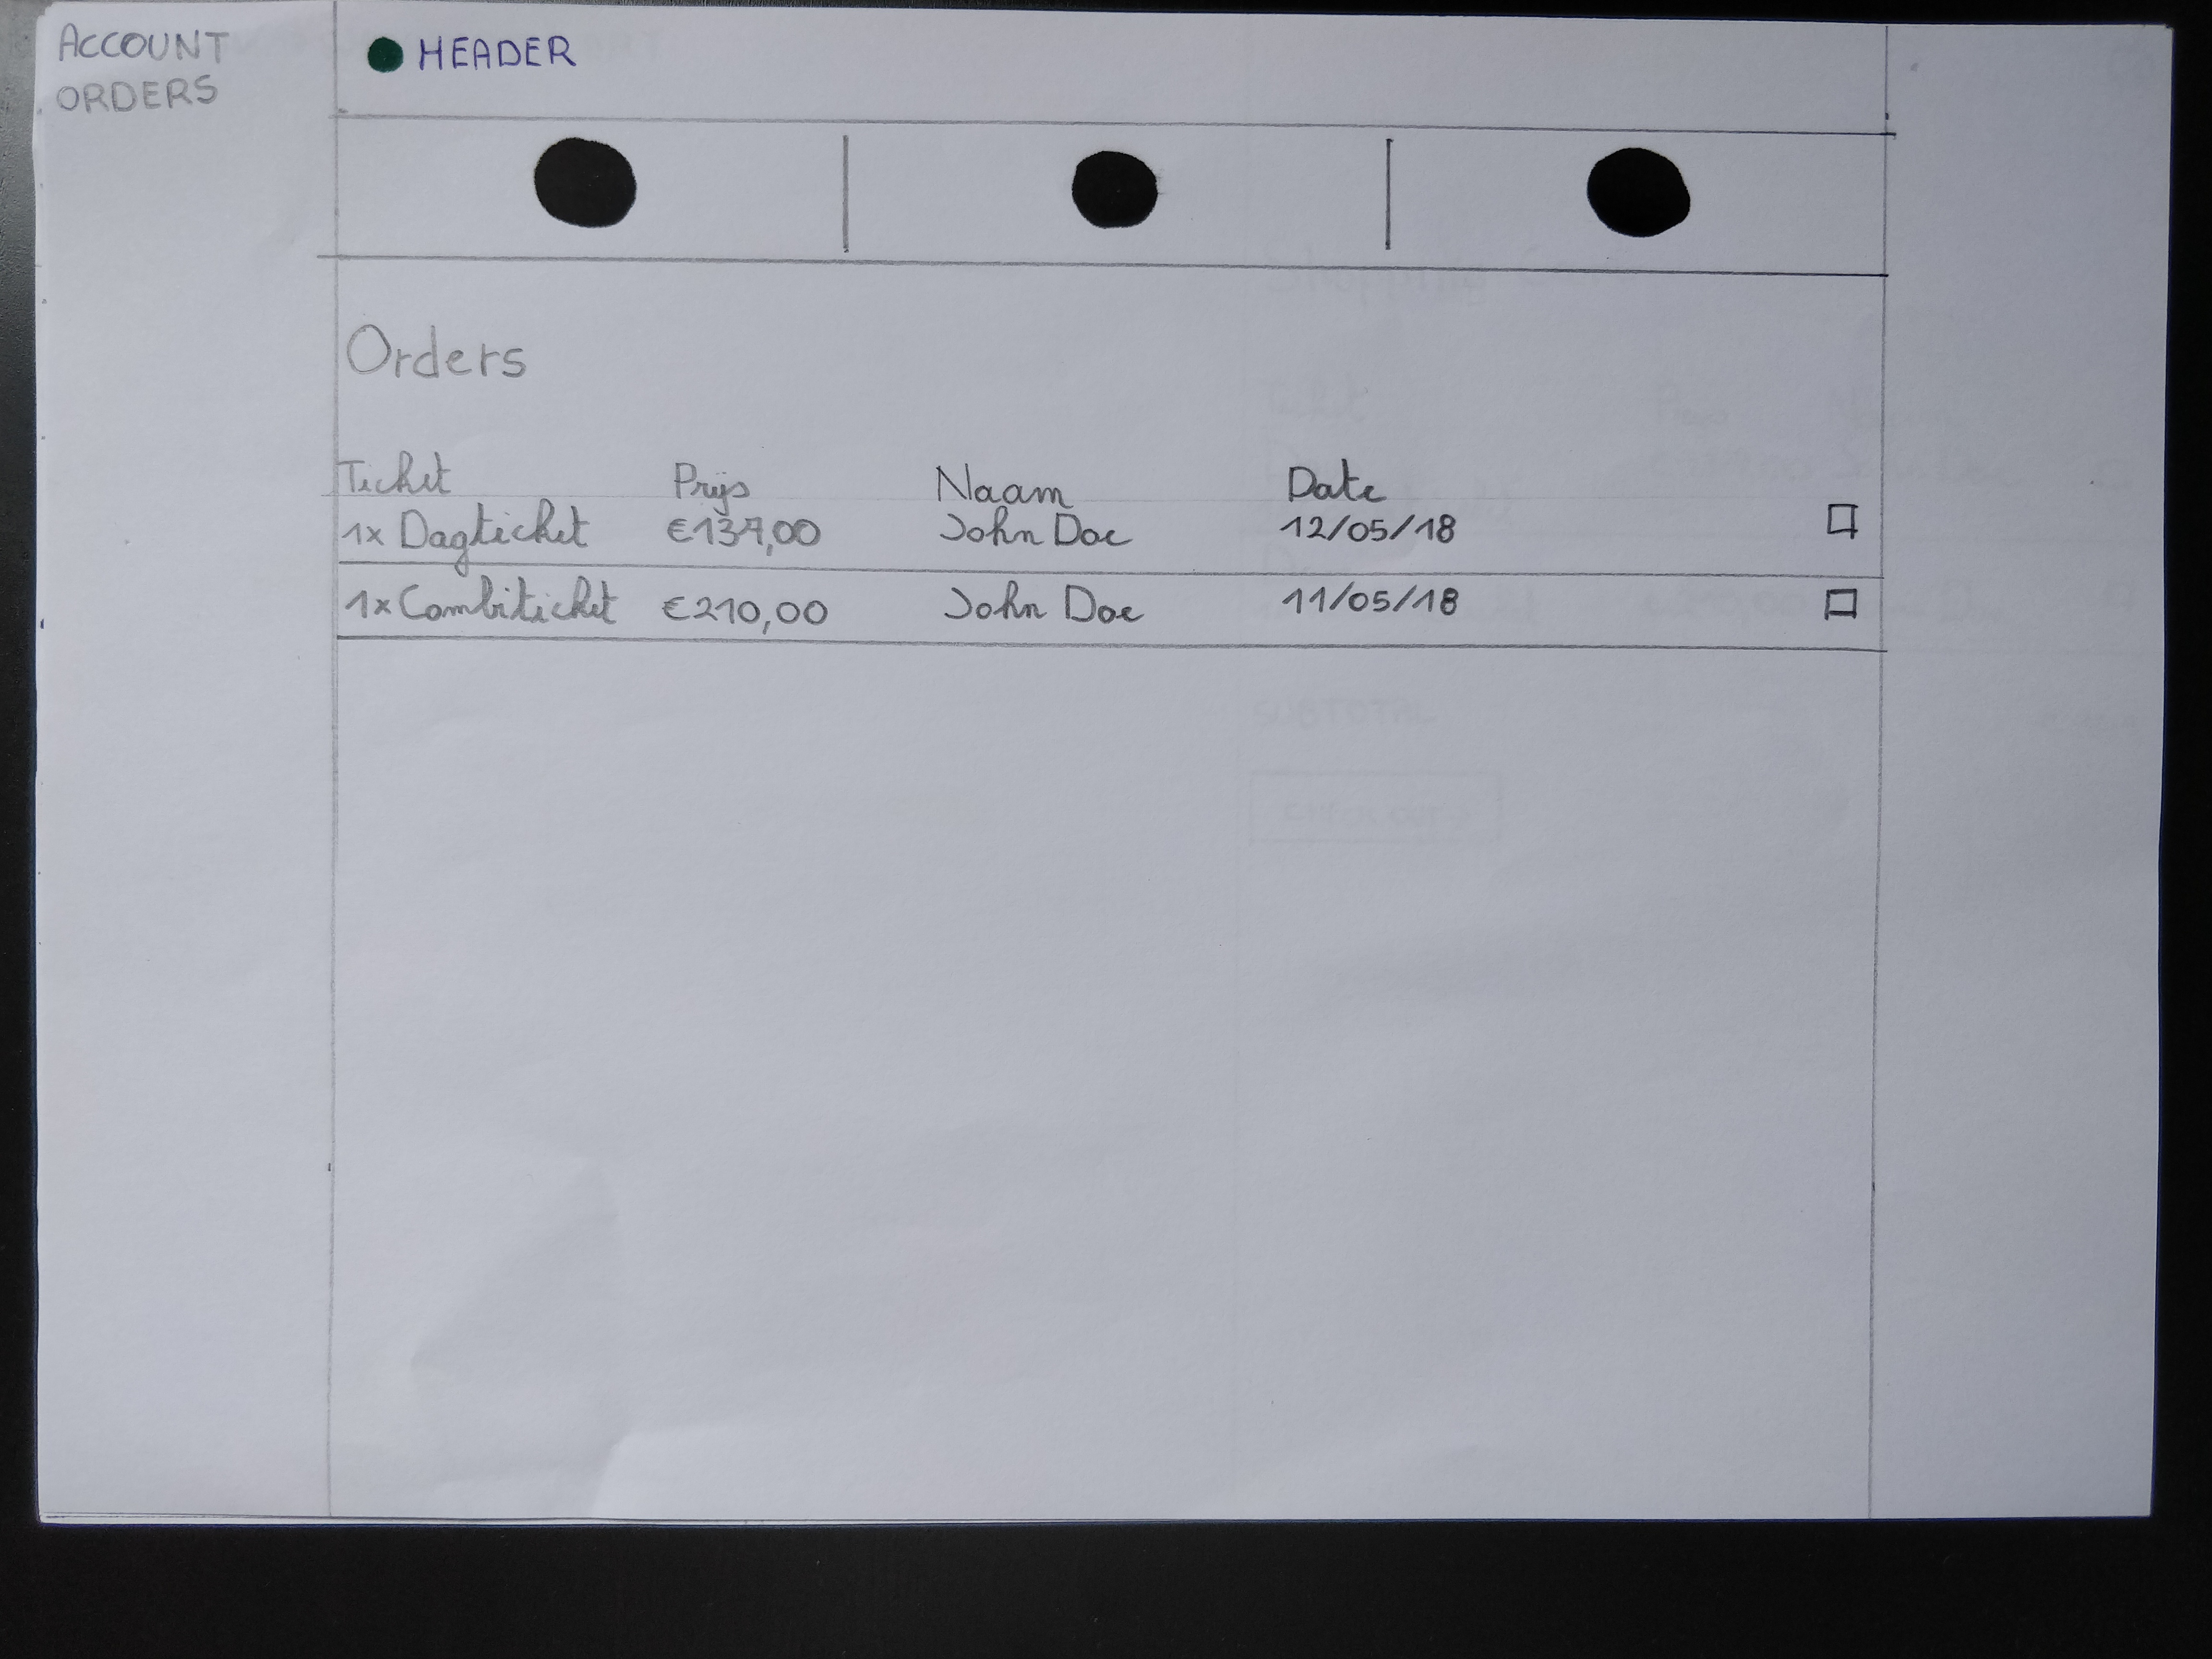 ACCOUNT
ORDERS
HEADER
Orders
Ticket Prijs Naam Date
1x Dagticket €137,00 John Doe 12/05/18
1x Combiticket €210,00 John Doe 11/05/18
SUBTOTAL